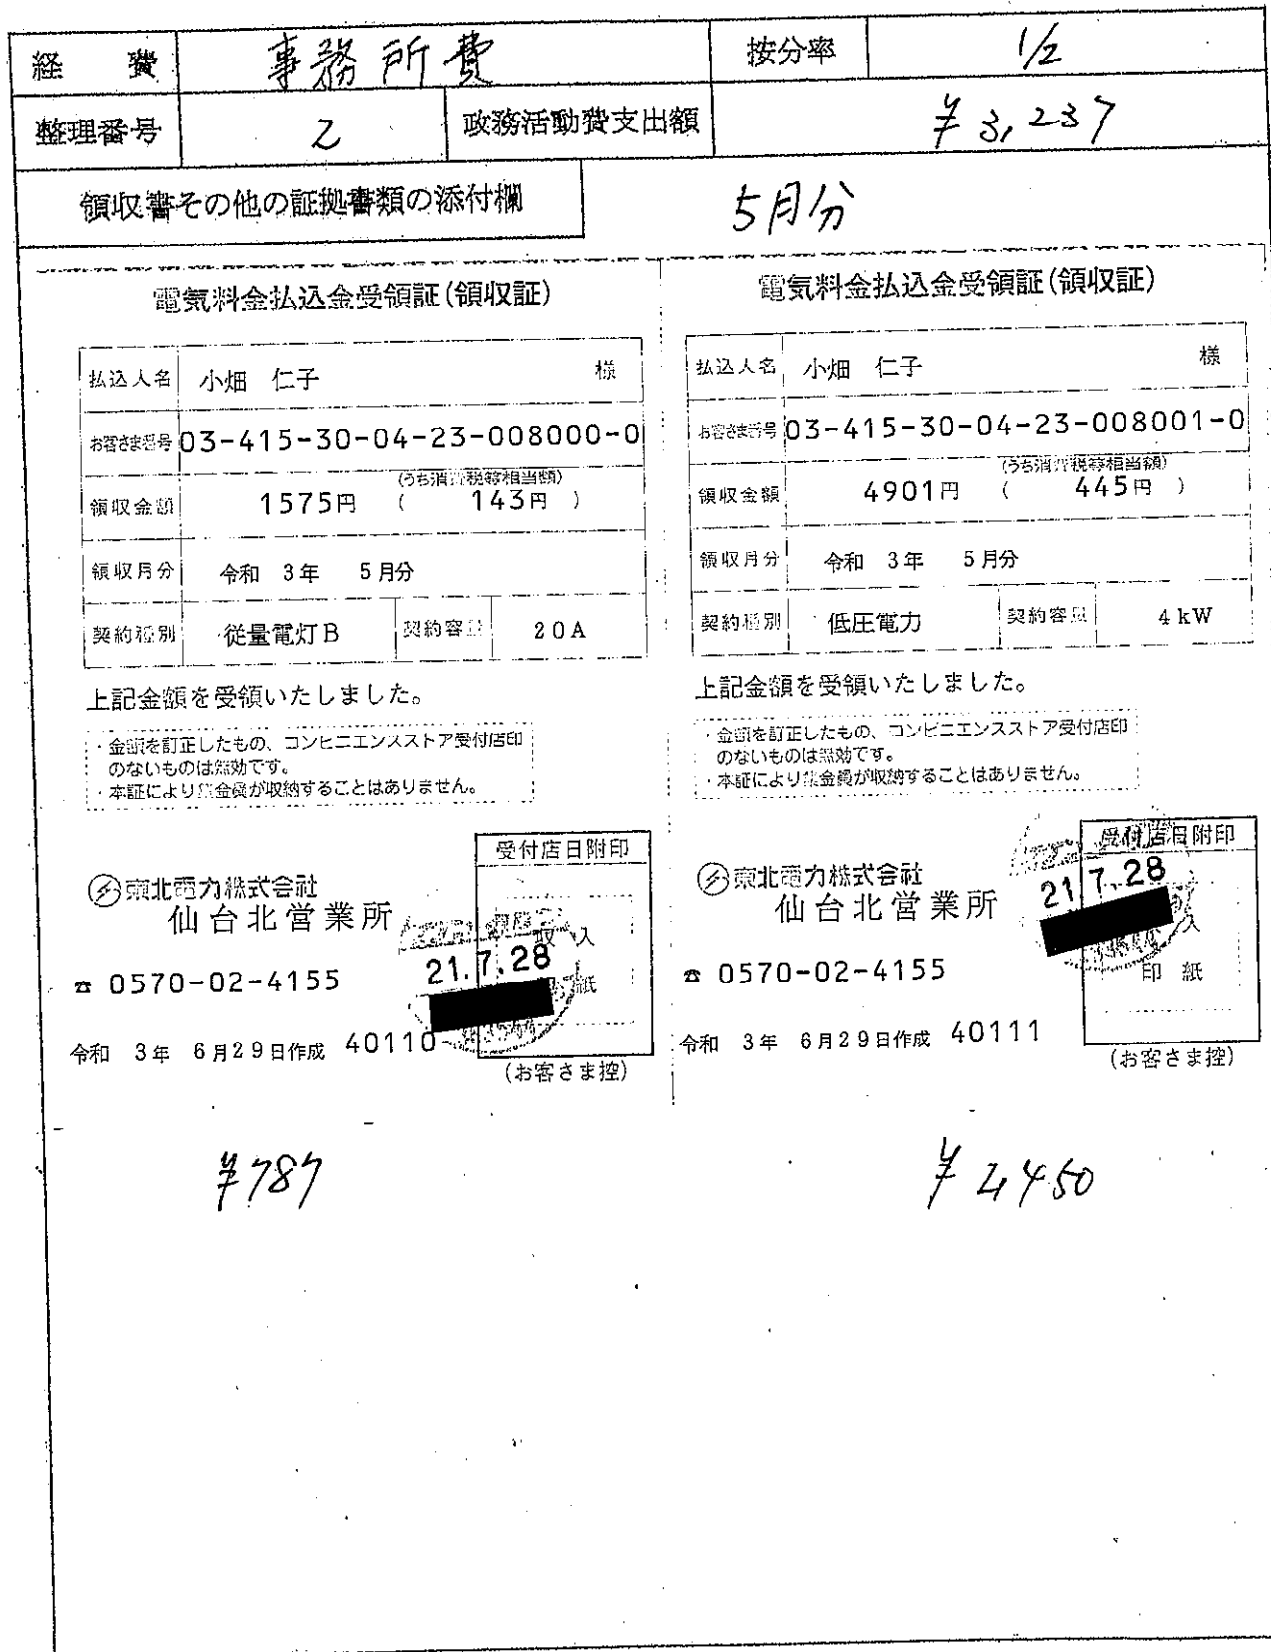 経 費 事務所費 按分率 1/2
整理番号 2 政務活動費支出額 ¥3,237
領収書その他の証拠書類の添付欄 5月分
電気料金払込金受領証(領収証)
払込人名 小畑 仁子 様
お客さま番号 03-415-30-04-23-008000-0
領収金額 1575円 (うち消費税等相当額) ( 143円 )
領収月分 令和 3年 5月分
契約種別 従量電灯B 契約容量 20A
上記金額を受領いたしました。
・金額を訂正したもの、コンビニエンスストア受付店印
のないものは無効です。
・本証により集金員が収納することはありません。
受付店日附印
東北電力株式会社
仙台北営業所
収入
21.7.28
印紙
☎ 0570-02-4155
令和 3年 6月29日作成 40110
(お客さま控)
¥787
電気料金払込金受領証(領収証)
払込人名 小畑 仁子 様
お客さま番号 03-415-30-04-23-008001-0
領収金額 4901円 (うち消費税等相当額) ( 445円 )
領収月分 令和 3年 5月分
契約種別 低圧電力 契約容量 4kW
上記金額を受領いたしました。
・金額を訂正したもの、コンビニエンスストア受付店印
のないものは無効です。
・本証により集金員が収納することはありません。
受付店日附印
東北電力株式会社
仙台北営業所
21.7.28
入
印紙
☎ 0570-02-4155
令和 3年 6月29日作成 40111
(お客さま控)
¥2,450